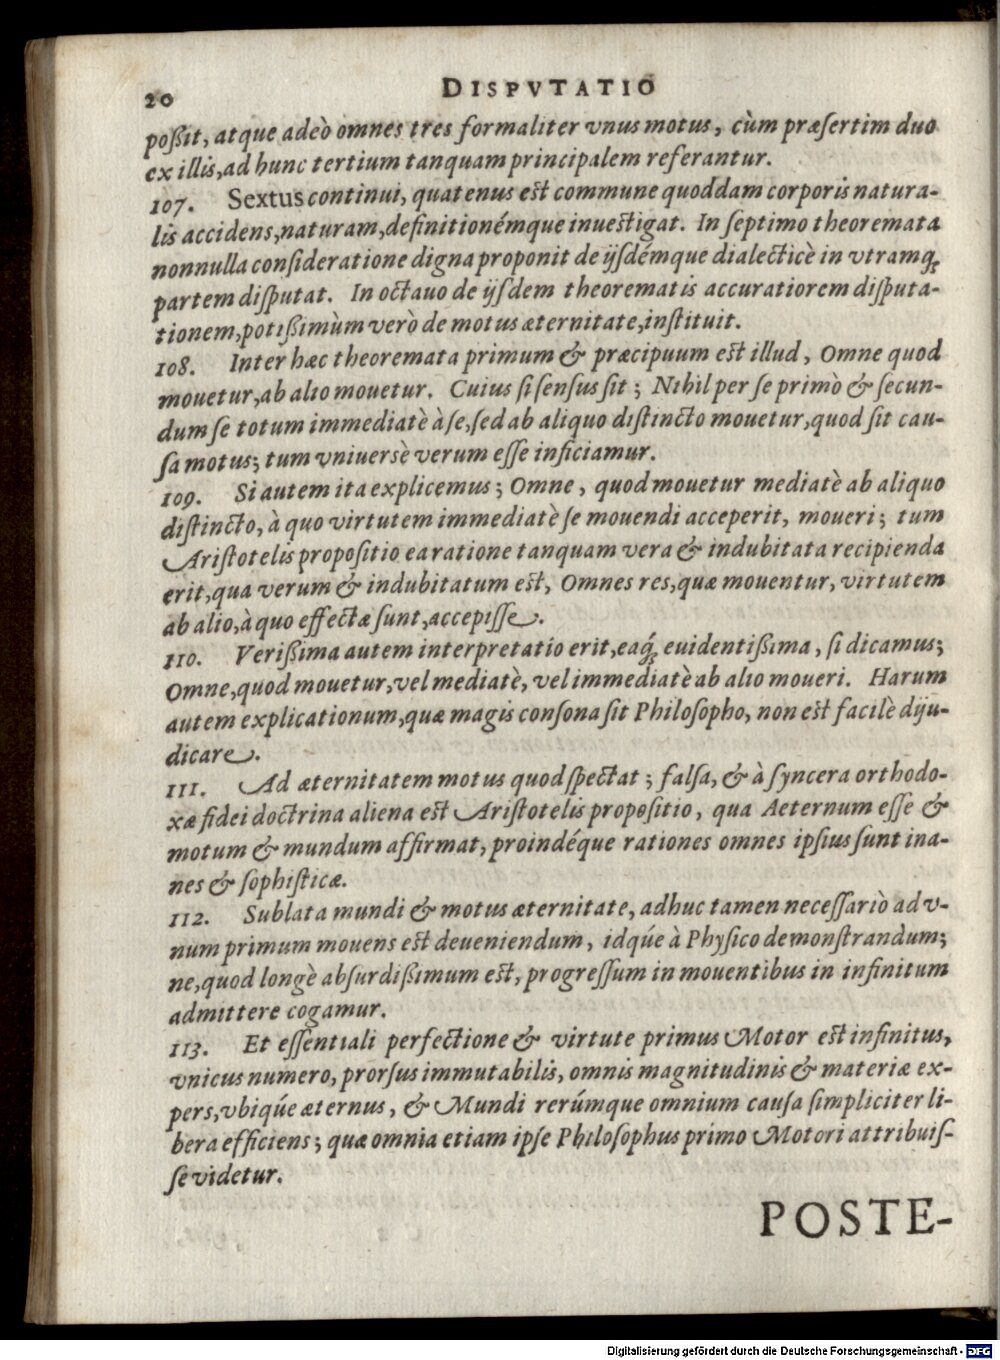 20 DISPVTATIO
poßit, atque adeò omnes tres formaliter vnus motus, cùm præsertim duo
ex illis, ad hunc tertium tanquam principalem referantur.
107. Sextus continui, quatenus est commune quoddam corporis natura-
lis accidens, naturam, definitionémque inuestigat. In septimo theoremata
nonnulla consideratione digna proponit de ijsdémque dialecticè in vtramq́;
partem disputat. In octauo de ijsdem theorematis accuratiorem disputa-
tionem, potißimùm verò de motus æternitate, instituit.
108. Inter hæc theoremata primum & præcipuum est illud, Omne quod
mouetur, ab alio mouetur. Cuius si sensus sit; Nihil per se primò & secun-
dum se totum immediatè à se, sed ab aliquo distincto mouetur, quod sit cau-
sa motus; tum vniuersè verum esse inficiamur.
109. Si autem ita explicemus; Omne, quod mouetur mediatè ab aliquo
distincto, à quo virtutem immediatè se mouendi acceperit, moueri; tum
Aristotelis propositio ea ratione tanquam vera & indubitata recipienda
erit, qua verum & indubitatum est, Omnes res, quæ mouentur, virtutem
ab alio, à quo effectæ sunt, accepisse.
110. Verißima autem interpretatio erit, eaq́; euidentißima, si dicamus;
Omne, quod mouetur, vel mediatè, vel immediatè ab alio moueri. Harum
autem explicationum, quæ magis consona sit Philosopho, non est facilè diju-
dicare.
111. Ad æternitatem motus quod spectat; falsa, & à syncera orthodo-
xæ fidei doctrina aliena est Aristotelis propositio, qua Aeternum esse &
motum & mundum affirmat, proindéque rationes omnes ipsius sunt ina-
nes & sophisticæ.
112. Sublata mundi & motus æternitate, adhuc tamen necessariò ad v-
num primum mouens est deueniendum, idqúe à Physico demonstrandum;
ne, quod longè absurdißimum est, progressum in mouentibus in infinitum
admittere cogamur.
113. Et essentiali perfectione & virtute primus Motor est infinitus,
vnicus numero, prorsus immutabilis, omnis magnitudinis & materiæ ex-
pers, vbiqúe æternus, & Mundi rerúmque omnium causa simpliciter li-
bera efficiens; quæ omnia etiam ipse Philosophus primo Motori attribuis-
se videtur.
POSTE-
Digitalisierung gefördert durch die Deutsche Forschungsgemeinschaft - DFG